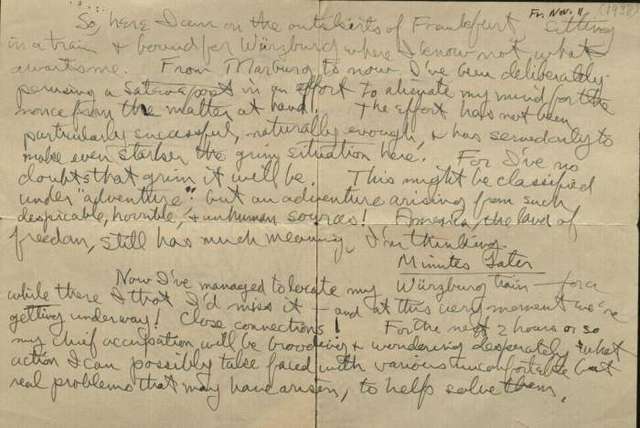 Fri. Nov. 11 (1938)
So, here I am on the outskirts of Frankfurt sitting
in a train & bound for Würzburg where I know not what
awaits me. From Marburg to now I've been deliberately
perusing a Sat eve post in an effort to alienate my mind for the
nonce from the matter at hand! The effort has not been
particularly successful, naturally enough, & has served only to
make even starker the grim situation here. For I've no
doubts that grim it will be. This might be classified
under "adventure" but an adventure arising from such
despicable, horrible, & unhuman sources! America, the land of
freedom, still has much meaning, I'm thinking.
Minutes Later
Now I've managed to locate my Würzburg train – for a
while there I that I'd miss it – and at this very moment we're
getting underway! Close connections! For the next 2 hours or so
my chief occupation will be brooding & wondering desperately what
action I can possibly take faced with various uncomfortable but
real problems that may have arisen, to help solve them.